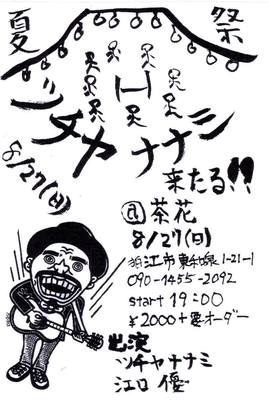 夏 祭
ツチヤ ナナミ
8/27(日) 来たる!!
@茶花
8/27(日)
狛江市東和泉1-21-1
090-1455-2092
start 19:00
¥2000+要オーダー
出演
ツチヤナナミ
江口 優